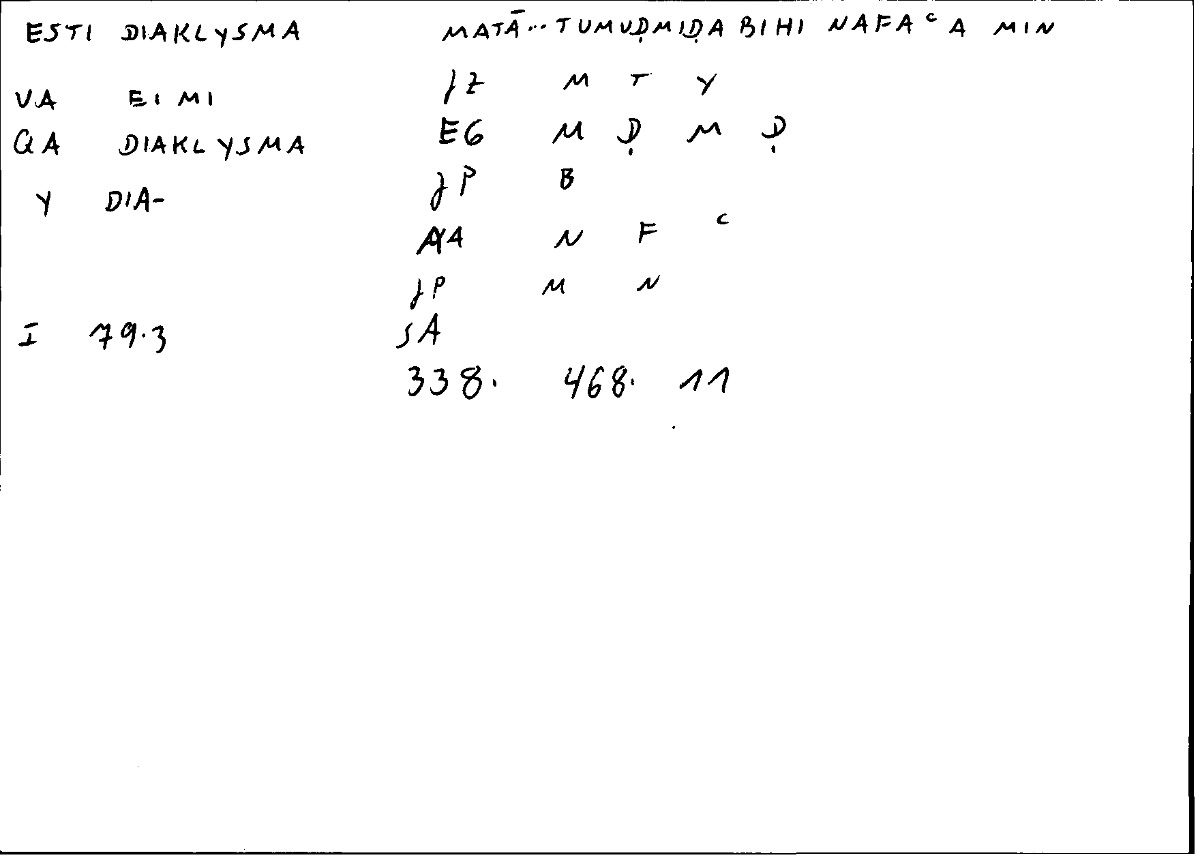 ESTI DIAKLYSMA MATĀ... TUMUḌMIḌA BIHI NAFAᶜA MIN
VA EIMI JZ M T Y
QA DIAKLYSMA EG M Ḍ M Ḍ
Y DIA- JP B
AA N F ᶜ
JP M N
I 79.3 SA
338. 468. 11